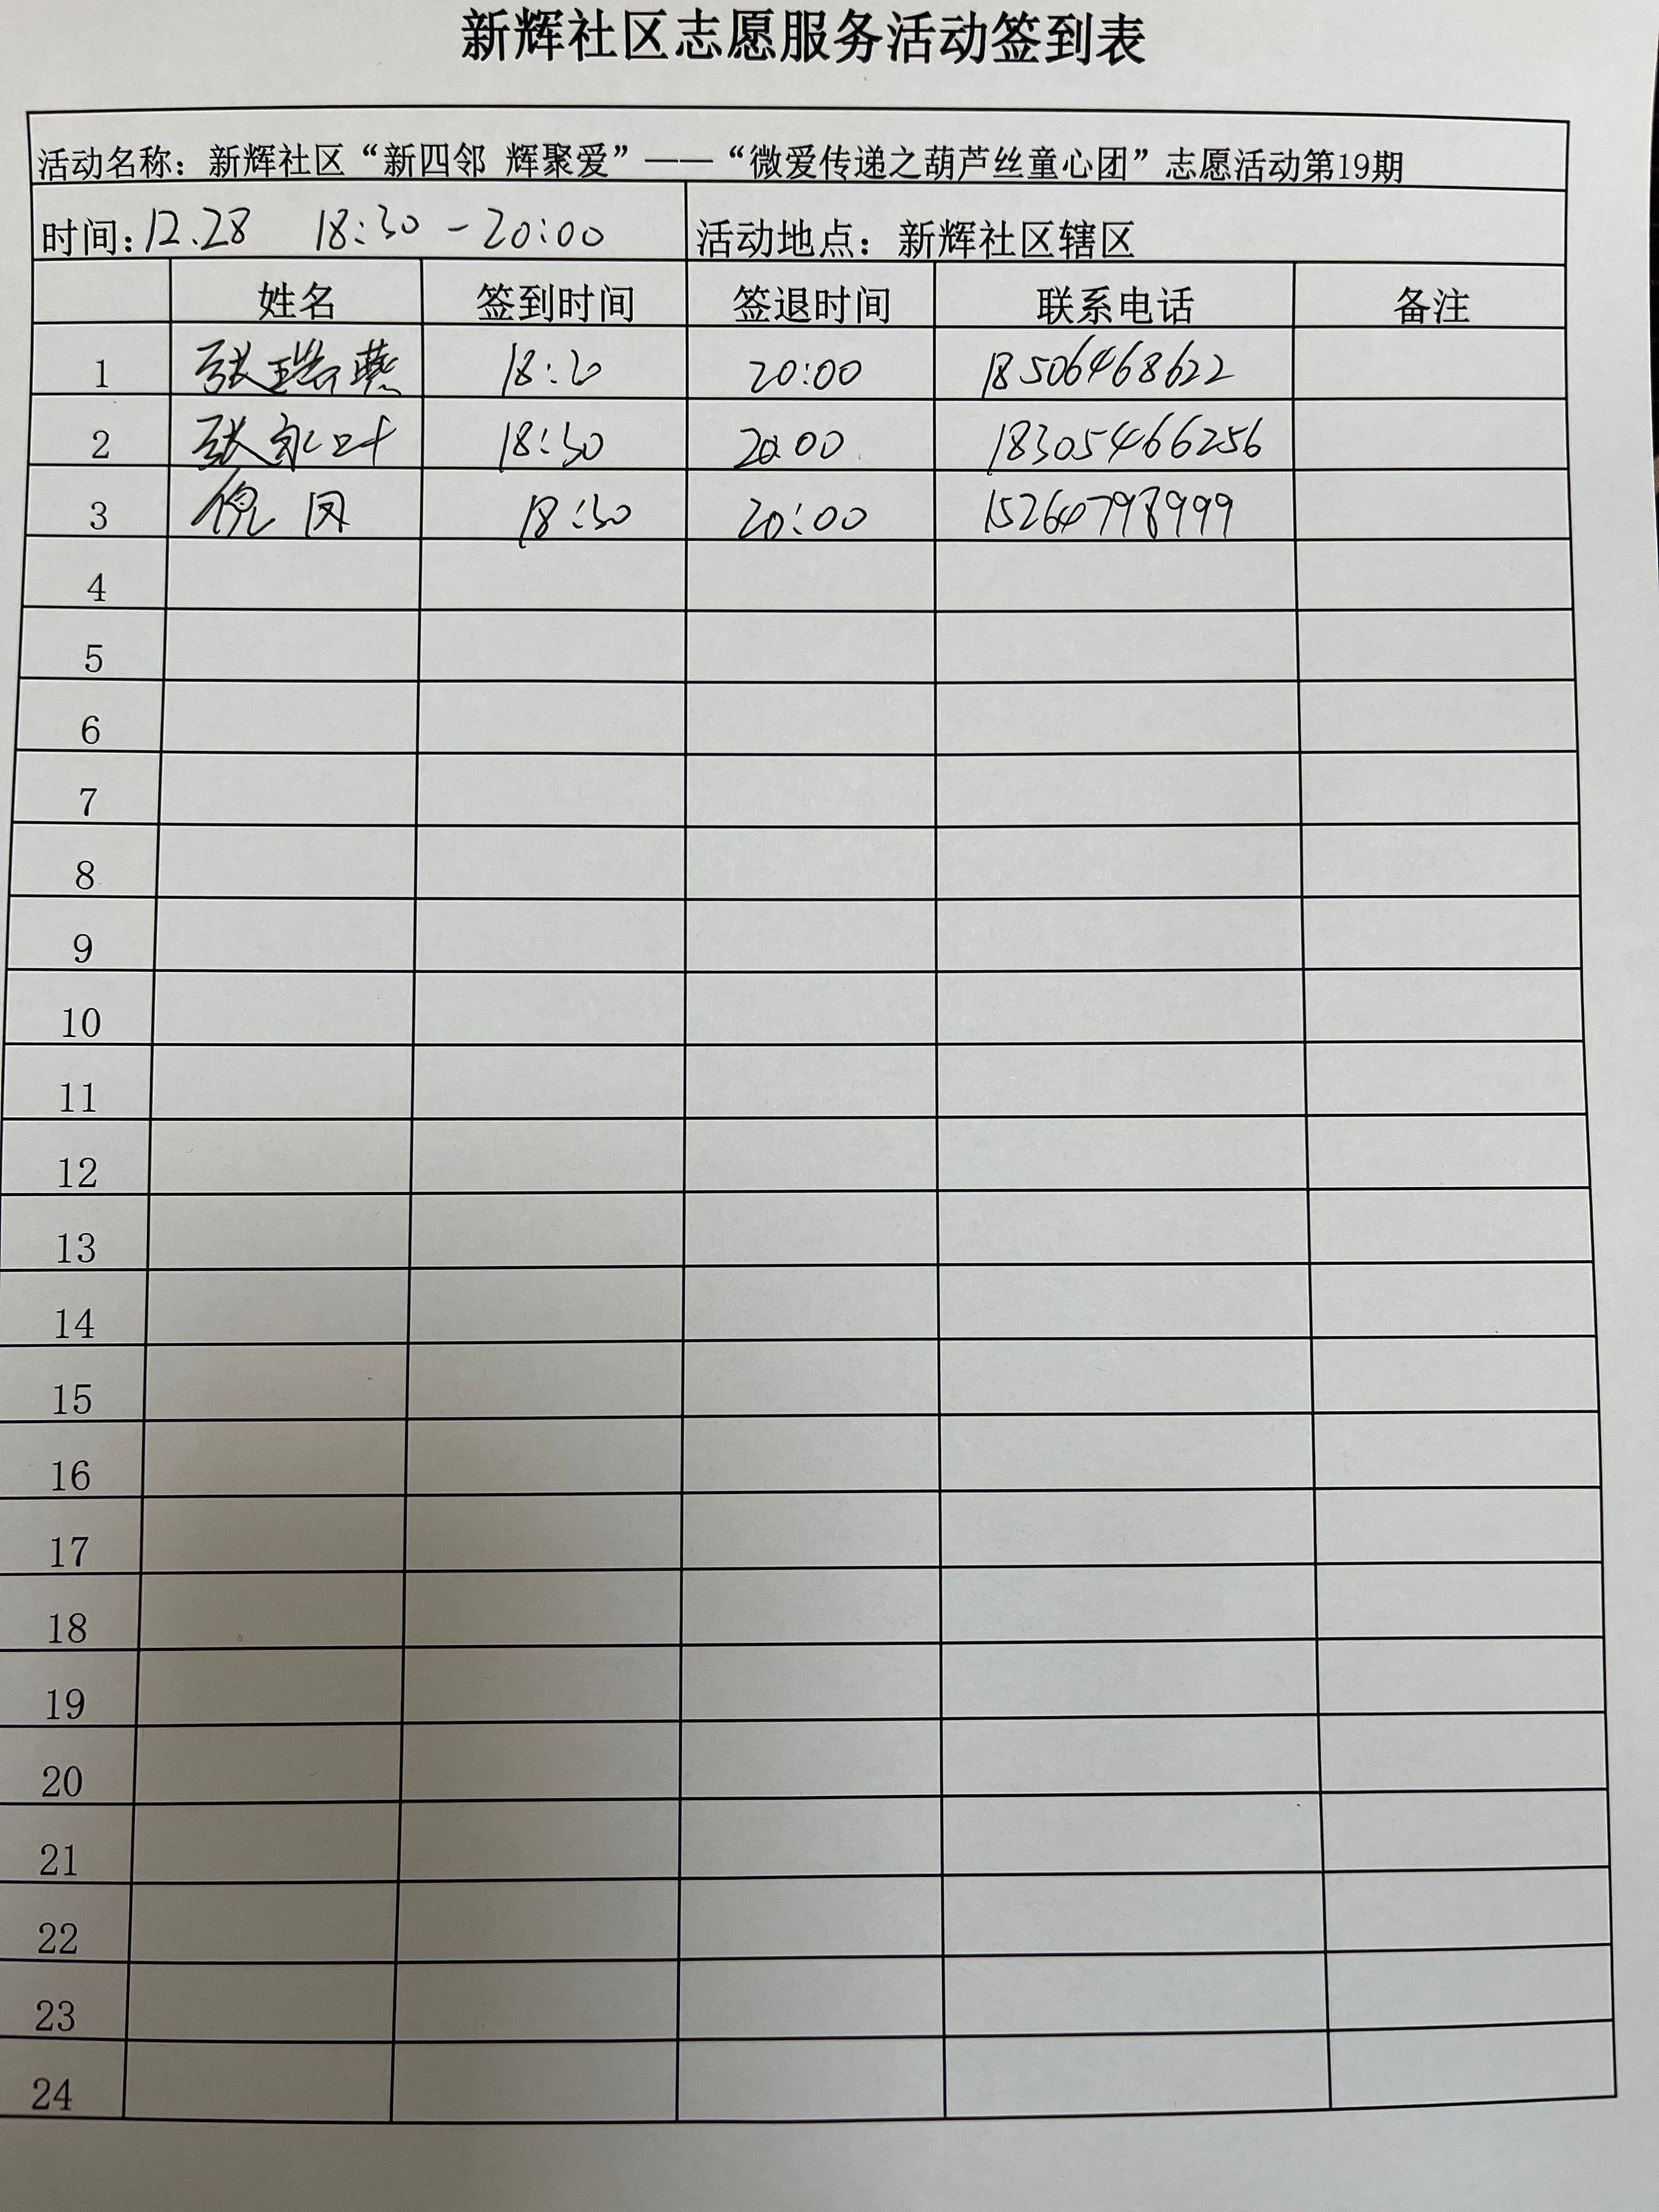 新辉社区志愿服务活动签到表
活动名称：新辉社区“新四邻 辉聚爱”——“微爱传递之葫芦丝童心团”志愿活动第19期
时间：12.28 18:30-20:00 活动地点：新辉社区辖区
姓名 签到时间 签退时间 联系电话 备注
1 张瑞燕 18:30 20:00 18506468622
2 张永叶 18:30 20:00 18305466256
3 倪凤 18:30 20:00 15264798999
4
5
6
7
8
9
10
11
12
13
14
15
16
17
18
19
20
21
22
23
24